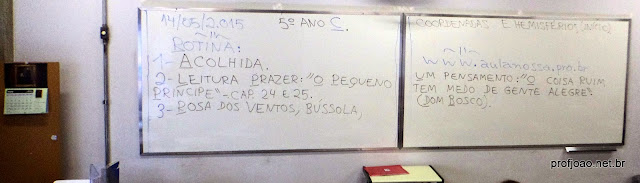 14/05/2.015 5º ANO C.
ROTINA:
1- ACOLHIDA.
2- LEITURA PRAZER: "O PEQUENO
PRÍNCIPE" - CAP. 24 E 25.
3- ROSA DOS VENTOS, BÚSSOLA,
COORDENADAS E HEMISFÉRIOS
www.aulanossa.pro.br
UM PENSAMENTO: "O COISA RUIM
TEM MEDO DE GENTE ALEGRE".
(DOM BOSCO).
profjoao.net.br